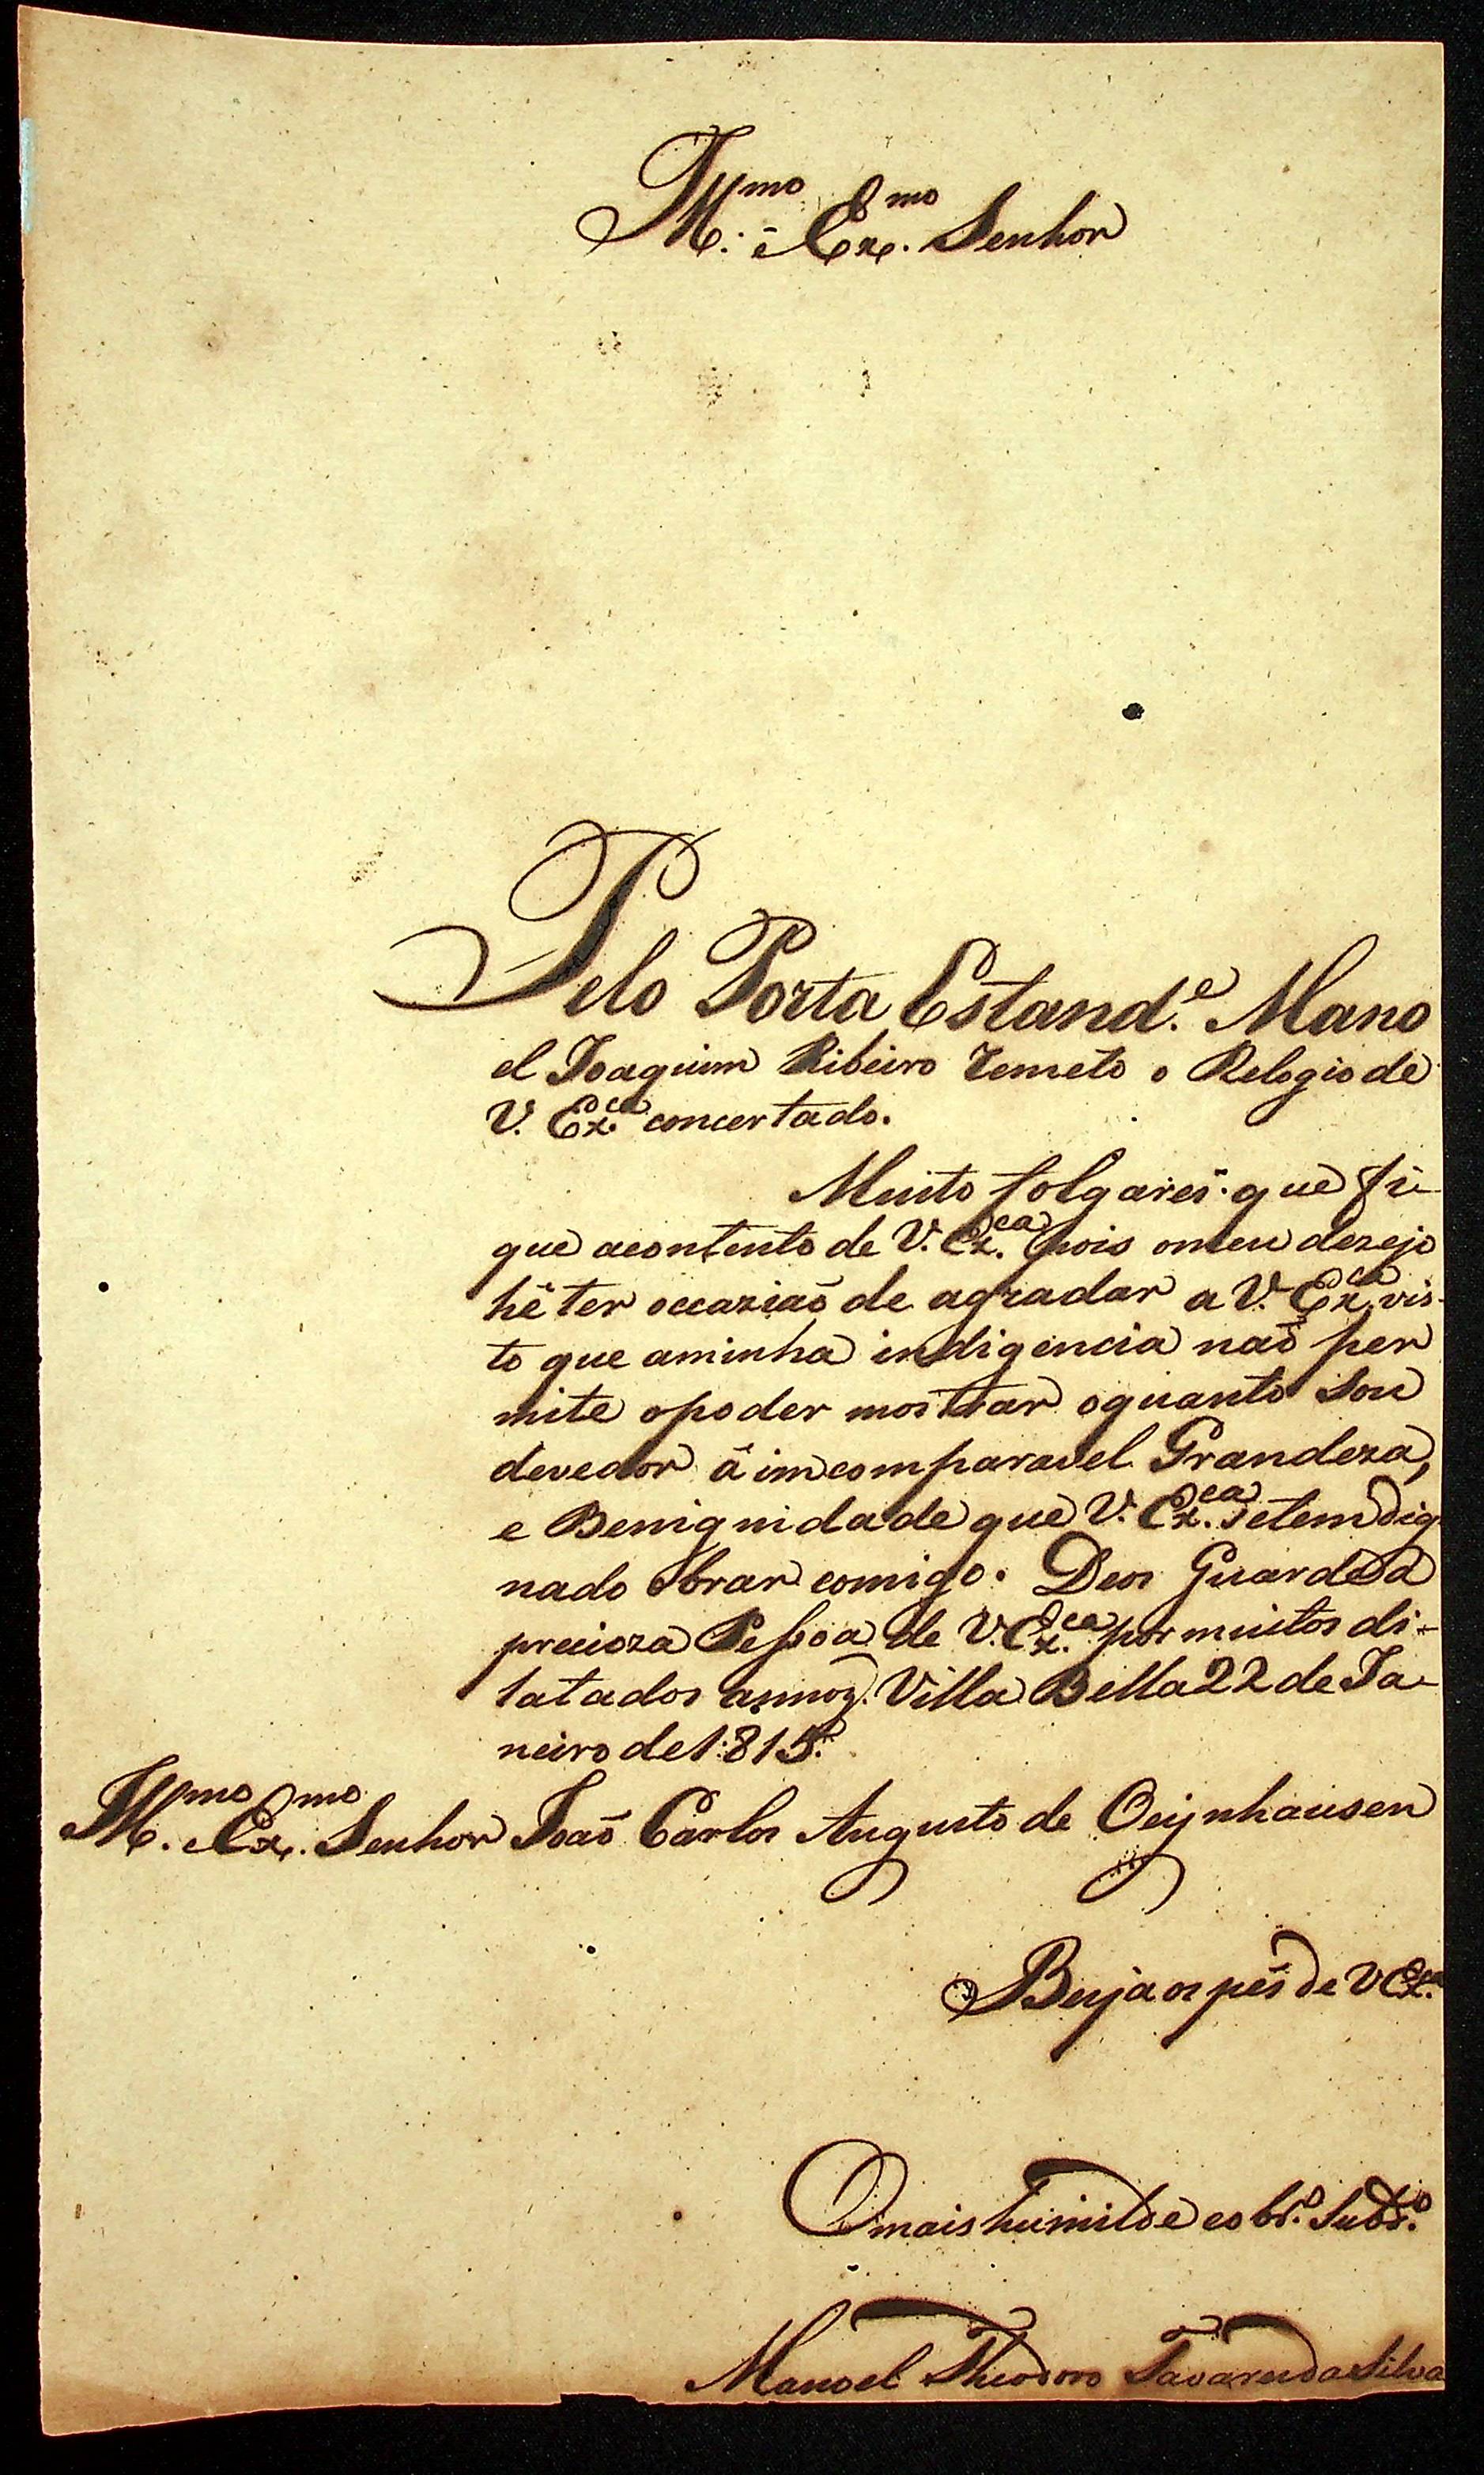 Ill.mo e Ex.mo Senhor
Pelo Porta Estand.e Mano
el Joaquim Ribeiro remeto o Relogio de
V. Ex.ca concertado.
Muito folgarei que fi
que acontento de V. Ex.ca pois omeu dezejo
hê ter occaziaõ de agradar a V. Ex.ca vis-
to que aminha indigencia naõ per
mite opoder mostrar oquanto sou
devedor â imcomparavel Grandeza,
e Benignidade que V. Ex.ca setem dig
nado obrar comigo. Deos Guarde a
precioza Pessoa de V. Ex.ca por muitos di-
latados annos. Villa Bella 22 de Ja-
neiro de 1:815.
Ill.mo Ex.mo Senhor Joaõ Carlos Augusto de Oeijnhausen
Beija os pés de V Ex.ca
Omais humilde e obr.o Subd.o
Manoel Theodoro Tavares da Silva